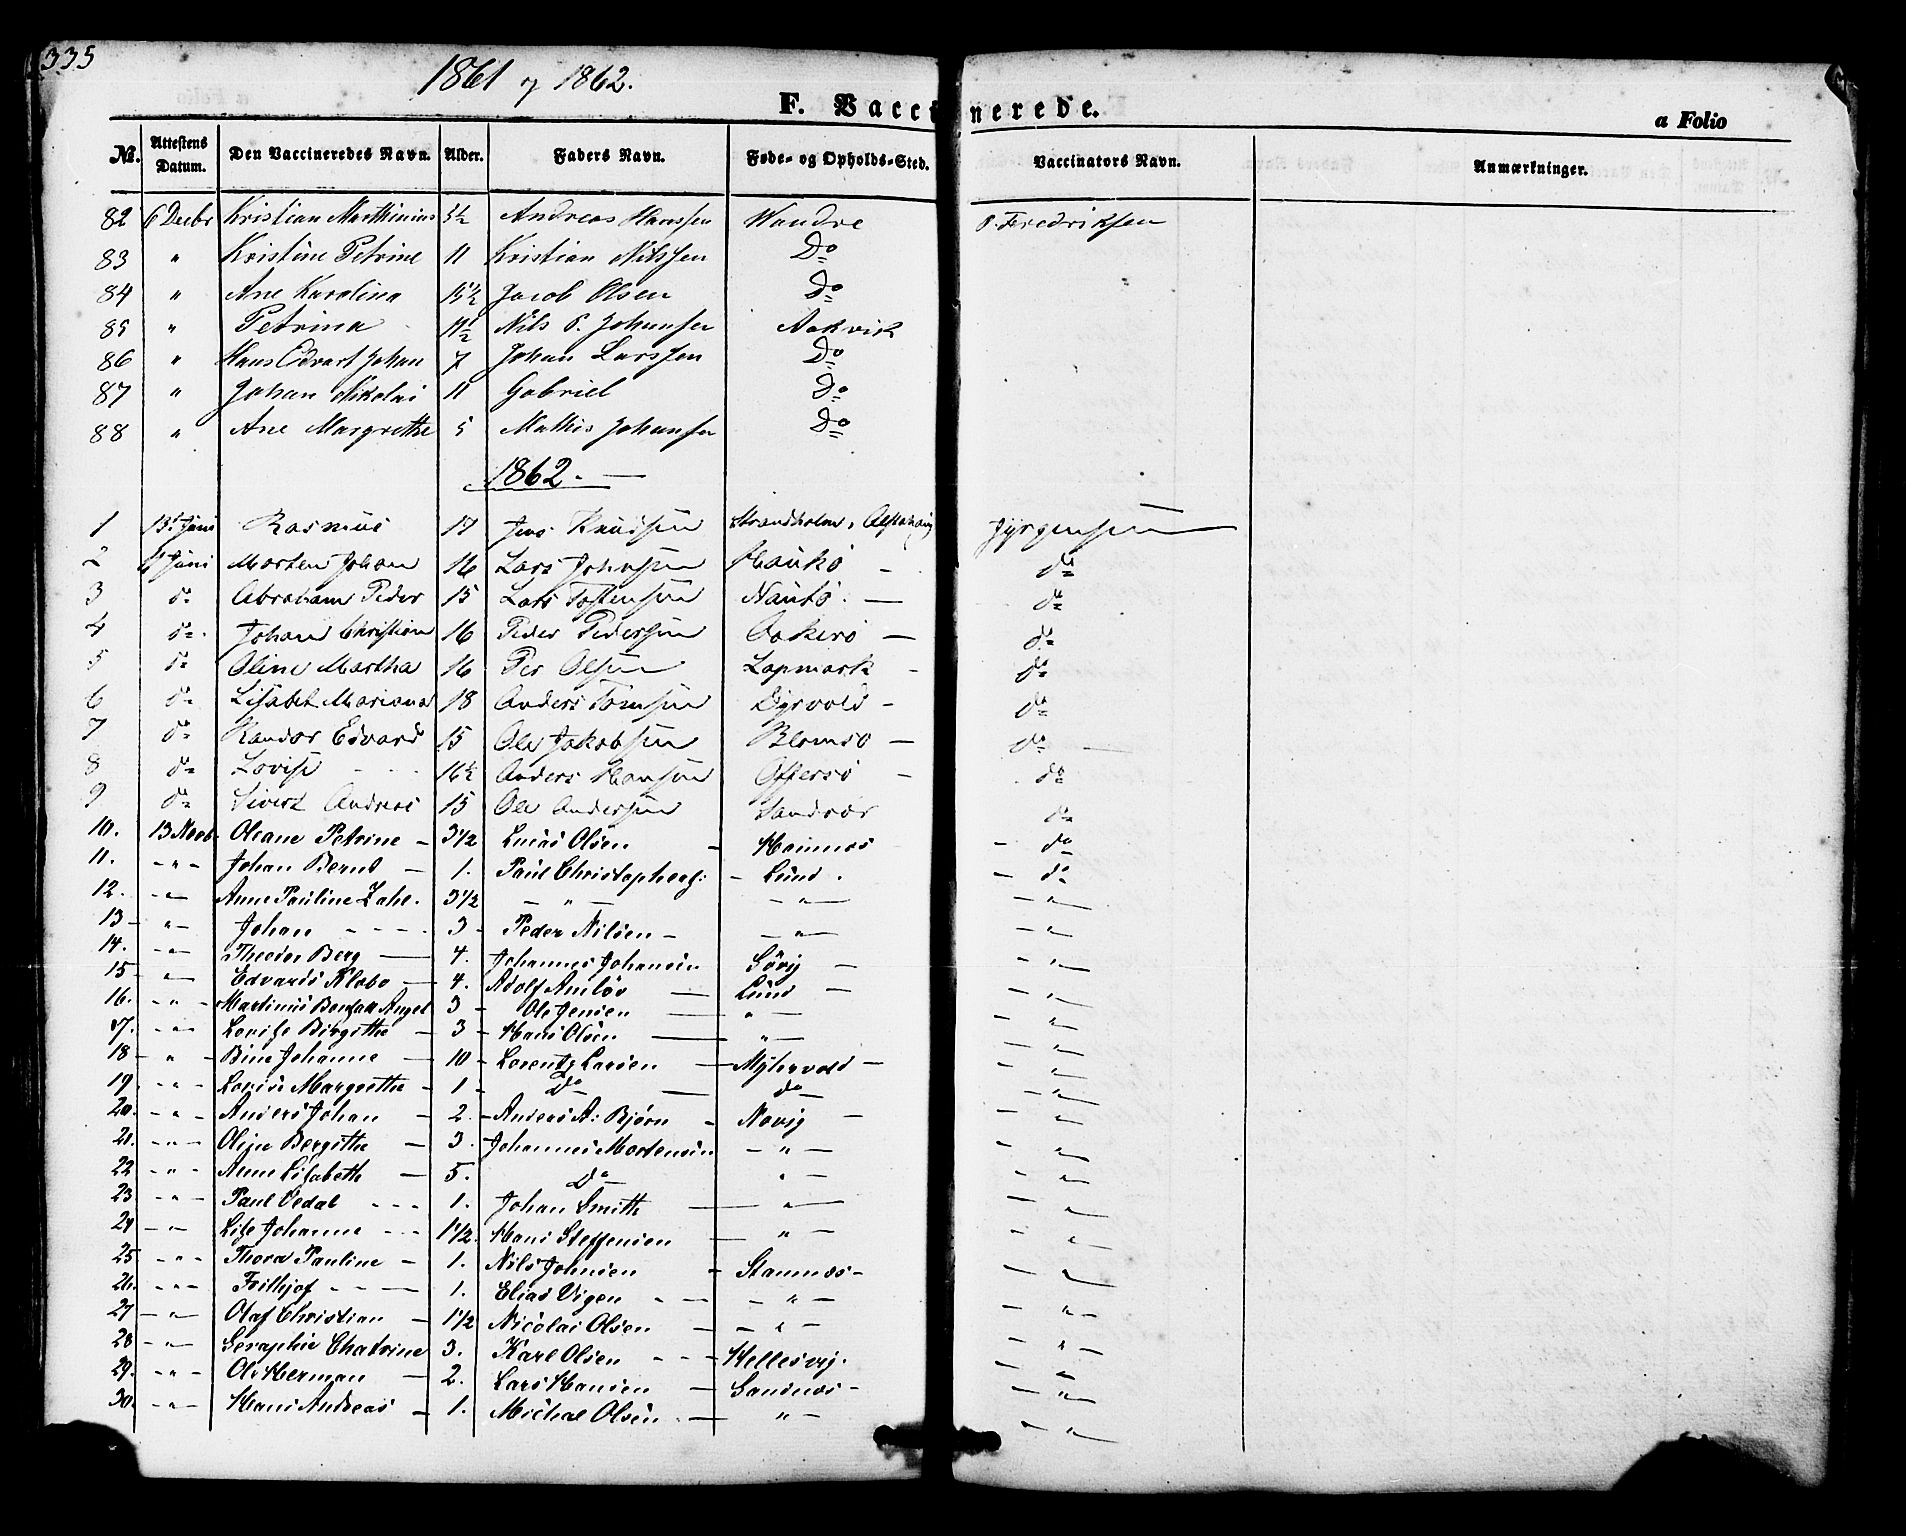 335
1861 og 1862.
F. Vaccinerede.
a Folio
No. Attestens Datum. Den Vaccineredes Navn. Alder. Faders Navn. Føde- og Opholds-Sted. Vaccinators Navn. Anmærkninger.
82 6 Decbr Kristian Marthinius 5½ Andreas Hanssen Wandve P. Fredriksen
83 " Kristine Petrine 11 Kristian Nilssen Do
84 " Ane Karolina 15½ Jacob Olsen Do
85 " Petrina 11½ Nils P. Johansen Aakvik
86 " Hans Edvart Johan 7 Johan Larssen Do
87 " Johan Nikolai 11 Gabriel Do
88 " Ane Margrethe 5 Mathis Johansen Do
1862.
1 13 Juni Rasmus 17 Jens Knudsen Strandholm, Alstahaug Jyrgensen
2 Juni Morten Johan 16 Lars Johnsen Haukø - do
3 do Abraham Peder 15 Lars Tostensen Nautø. - do
4 do. Johan Christian 16 Peder Pedersen Aakerø - do
5 do Oline Martha 16 Per Olsen Lapmark - do
6 do Lisabet Mariana 18 Anders Tomsen Dyrvold - do
7 do Randor Edvard 15 Ole Jakobsen Blomsø - do
8 do Lovise 16½ Anders Hansen Offersø - do
9 do Sivert Andreas 15 Ole Andersen Sandvær do
10. 13 Novb. Oleane Petrine - 3 1/2 Lucas Olsen - Hannæs - do
11. - " - Johan Bernt - 1. Paul Christophers: - Lund. - do
12. - " - Anne Pauline Zahl. 3 1/2 - " - - " - - " -
13 - " - Johan - - - - 3 - Peder Nilsen - - " - - " -
14. - " - Theodor Berg - 4. Johannes Johansen Søvig - - " -
15 - " - Edvards Klæbo - 4. Adolf - Lund - - " -
16. - " - Martinus Angel 3 - Ole Jensen - " - - " -
17. - " - Lovise Birgitha - 3 - Hans Olsen - " - - " -
18 - " - Bine Johanne - 10 - Lorents Larsen - - - " -
19. - " - Lovise Margrethe - 1 - Do - do - " -
20. - " - Anders Johan - 2. - Anders A: Bjørn - Novig - - " -
21. - " - Oline Bergitha - 3. - Johannes Mortensen - " - - " -
22 - " - Anne Lisabeth - 5. Do " - - " -
23 - " - Paul - - - 1. Johan Smith - " - - " -
24 - " - Lise Johanne - - - 1 1/2. Hans Steffensen - " - - " -
25 - " - Thora Pauline - 1. Nils Johnsen - Stamnæs - - " -
26. - " - Frithjof - - - 1. Elias Vigen - - - " - - " -
27 - " - Olaf Christian - 1 1/2 Nicolai Olsen - - " - - " -
28 - " - Seraphie Chatrine 3. Karl Olsen - - - Hellesvig. - " -
29. - " - Ole Herman - 2. Lars Hansen - Sandnæs - - " -
30. - " - Hans Andreas - 1. Michal Olsen - " - - " -